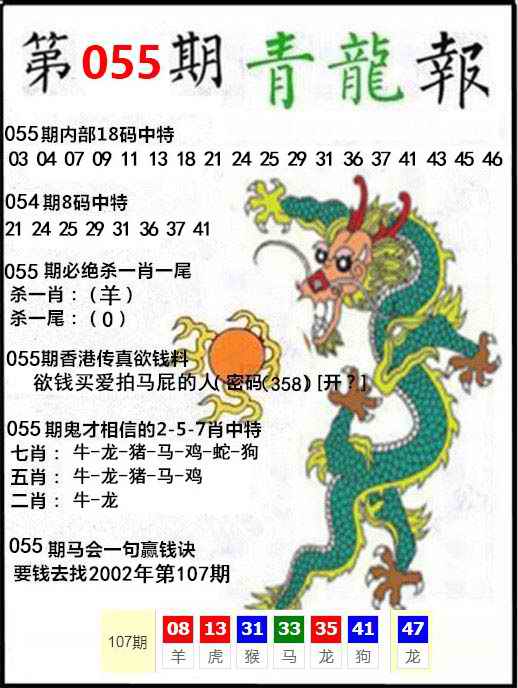 第055期 青龍報
055期内部18码中特
03 04 07 09 11 13 18 21 24 25 29 31 36 37 41 43 45 46
054期8码中特
21 24 25 29 31 36 37 41
055 期必绝杀一肖一尾
杀一肖：（羊）
杀一尾：（0）
055期香港传真欲钱料
欲钱买爱拍马屁的人(密码(358)[开？]
055期鬼才相信的2-5-7肖中特
七肖：牛-龙-猪-马-鸡-蛇-狗
五肖：牛-龙-猪-马-鸡
二肖：牛-龙
055期马会一句赢钱诀
要钱去找2002年第107期
107期 08 13 31 33 35 41 47
羊 虎 猴 马 龙 狗 龙